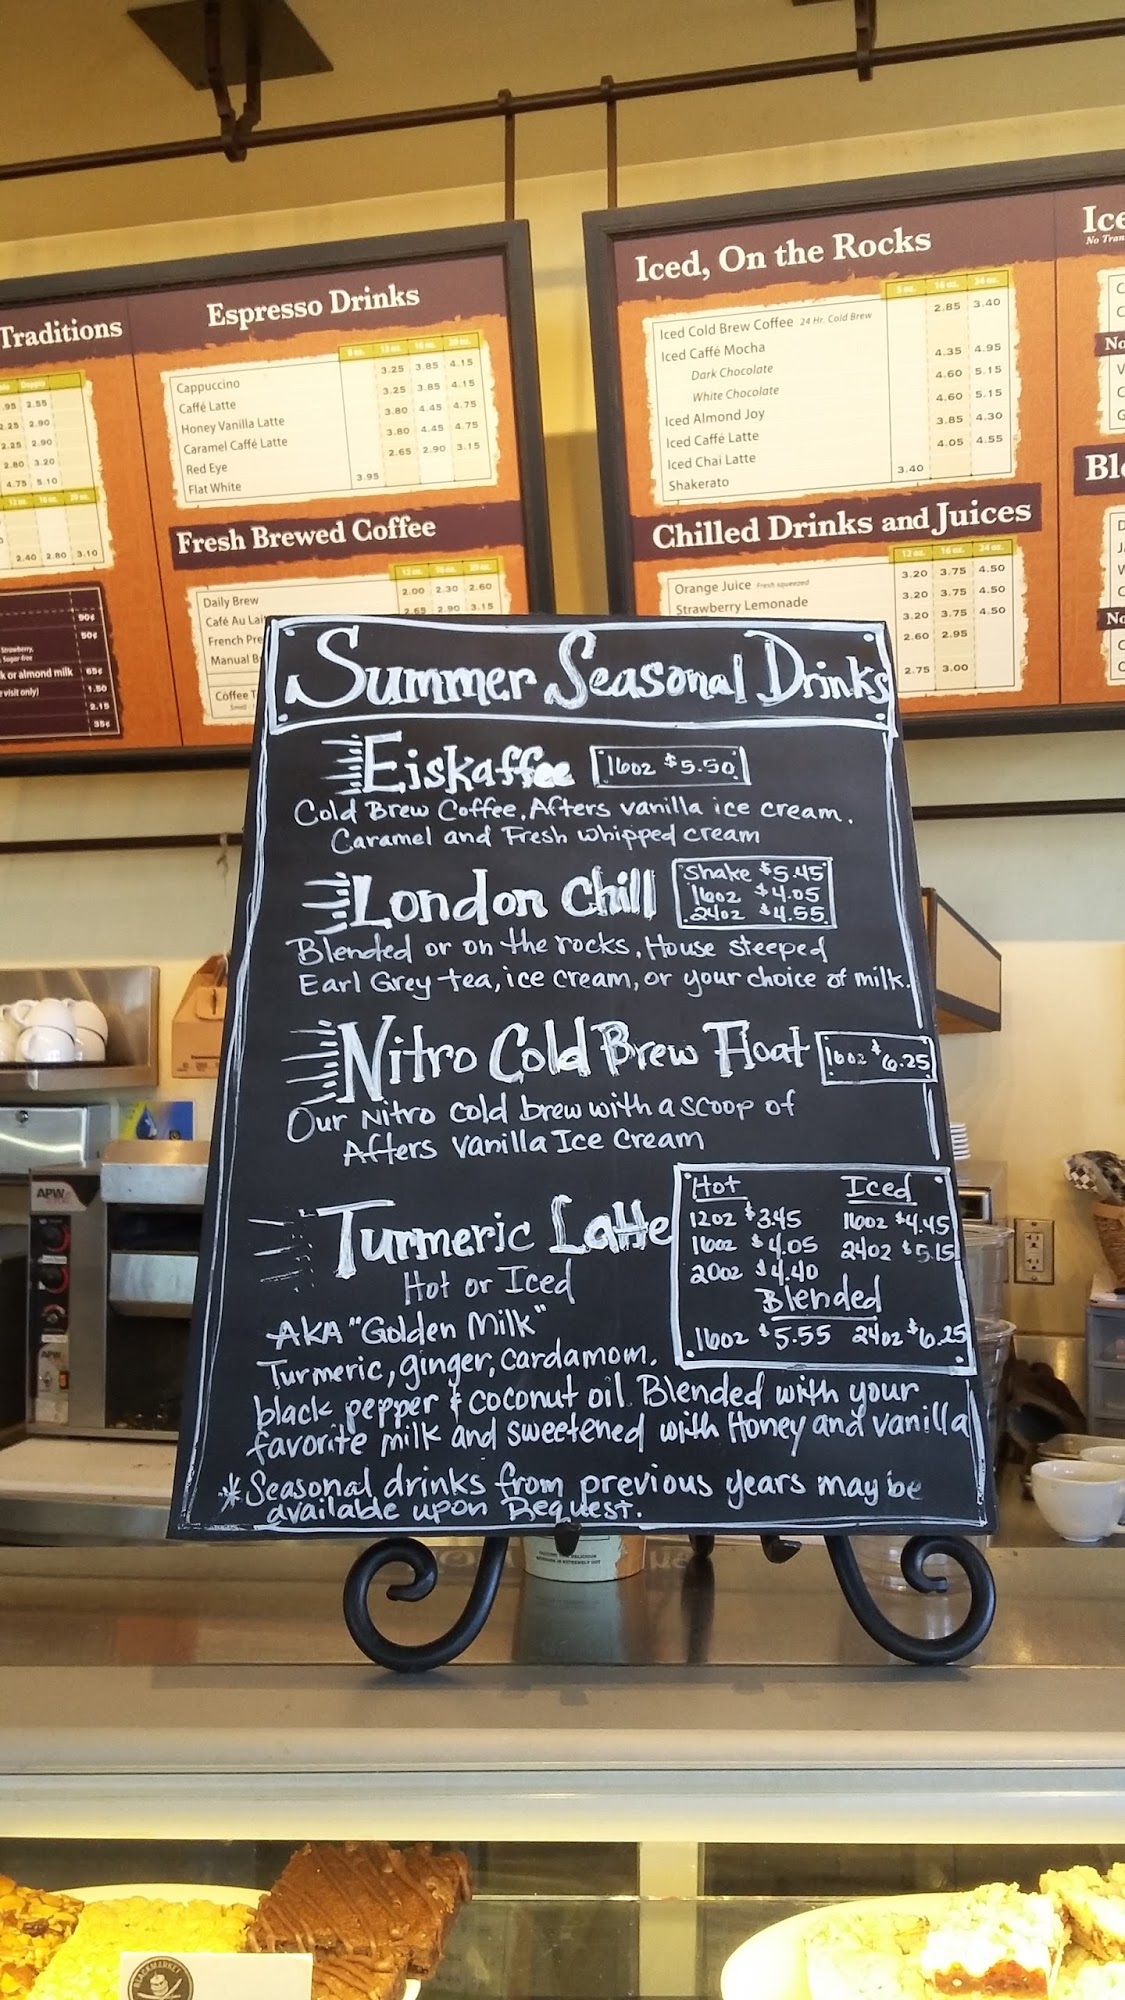 Traditions
Doppio
.95 2.55
2.25 2.90
2.25 2.90
2.80 3.20
4.75 5.10
12 oz. 16 oz. 20 oz.
2.40 2.80 3.10
90¢
50¢
Strawberry,
Sugar free
k or almond milk 65¢
e visit only) 1.50
2.15
35¢
Espresso Drinks
8 oz. 12 oz. 16 oz. 20 oz.
Cappuccino 3.25 3.85 4.15
Caffé Latte 3.25 3.85 4.15
Honey Vanilla Latte 3.80 4.45 4.75
Caramel Caffé Latte 3.80 4.45 4.75
Red Eye 2.65 2.90 3.15
Flat White 3.95
Fresh Brewed Coffee
12 oz. 16 oz. 20 oz.
Daily Brew 2.00 2.30 2.60
Café Au Lai 2.65 2.90 3.15
French Pre
Manual B
Coffee T
Small
Iced, On the Rocks
8 oz. 16 oz. 24 oz.
Iced Cold Brew Coffee 24 Hr. Cold Brew 2.85 3.40
Iced Caffé Mocha
Dark Chocolate 4.35 4.95
White Chocolate 4.60 5.15
Iced Almond Joy 4.60 5.15
Iced Caffé Latte 3.85 4.30
Iced Chai Latte 4.05 4.55
Shakerato 3.40
Chilled Drinks and Juices
12 oz. 16 oz. 24 oz.
Orange Juice Fresh squeezed 3.20 3.75 4.50
Strawberry Lemonade 3.20 3.75 4.50
3.20 3.75 4.50
2.60 2.95
2.75 3.00
Ice
No Tran
No
Ble
No
Summer Seasonal Drinks
Eiskaffee 16oz $5.50
Cold Brew Coffee, Afters vanilla ice cream.
Caramel and Fresh whipped cream
London Chill
Shake $5.45
16oz $4.05
24oz $4.55
Blended or on the rocks, House steeped
Earl Grey tea, ice cream, or your choice of milk.
Nitro Cold Brew Float 16oz $6.25
Our Nitro cold brew with a scoop of
Afters Vanilla Ice Cream
Turmeric Latte
Hot or Iced
Hot Iced
12oz $3.45 16oz $4.45
16oz $4.05 24oz $5.15
20oz $4.40
Blended
16oz $5.55 24oz $6.25
AKA "Golden Milk"
Turmeric, ginger, cardamom,
black pepper & coconut oil. Blended with your
favorite milk and sweetened with Honey and vanilla
*Seasonal drinks from previous years may be
available upon Request.
APW
APW
BLACKMARKET